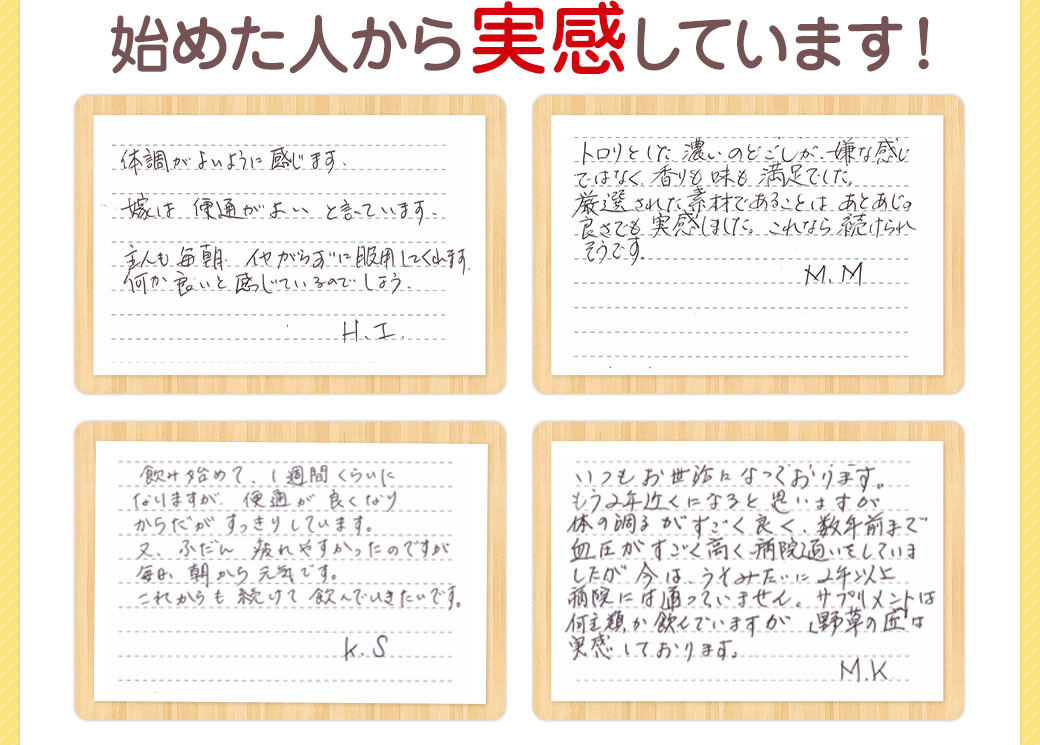 始めた人から実感しています!
体調がよいように感じます.
嫁は 便通がよい と言っています.
主人も毎朝. イヤがらずに服用してくれます.
何か良いと感じているのでしょう.
H.I.
トロリとした濃いのどごしが、嫌な感じ
ではなく 香りも味も満足でした。
厳選された素材であることは、あとあじの
良さでも実感しました。これなら続けられ
そうです.
M.M
飲み始めて、1週間くらいに
なりますが、便通が良くなり
からだがすっきりしています。
又、ふだん 疲れやすかったのですが
毎日、朝から元気です。
これからも続けて飲んでいきたいです。
K.S
いつもお世話になっております。
もう2年近くになると思いますが
体の調子がすごく良く、数年前まで
血圧がすごく高く病院通いをしていま
したが今は、うそみたいに2年以上
病院には通っていません。サプリメントは
何種類か飲んでいますが「野草の匠」は
実感しております。
M.K